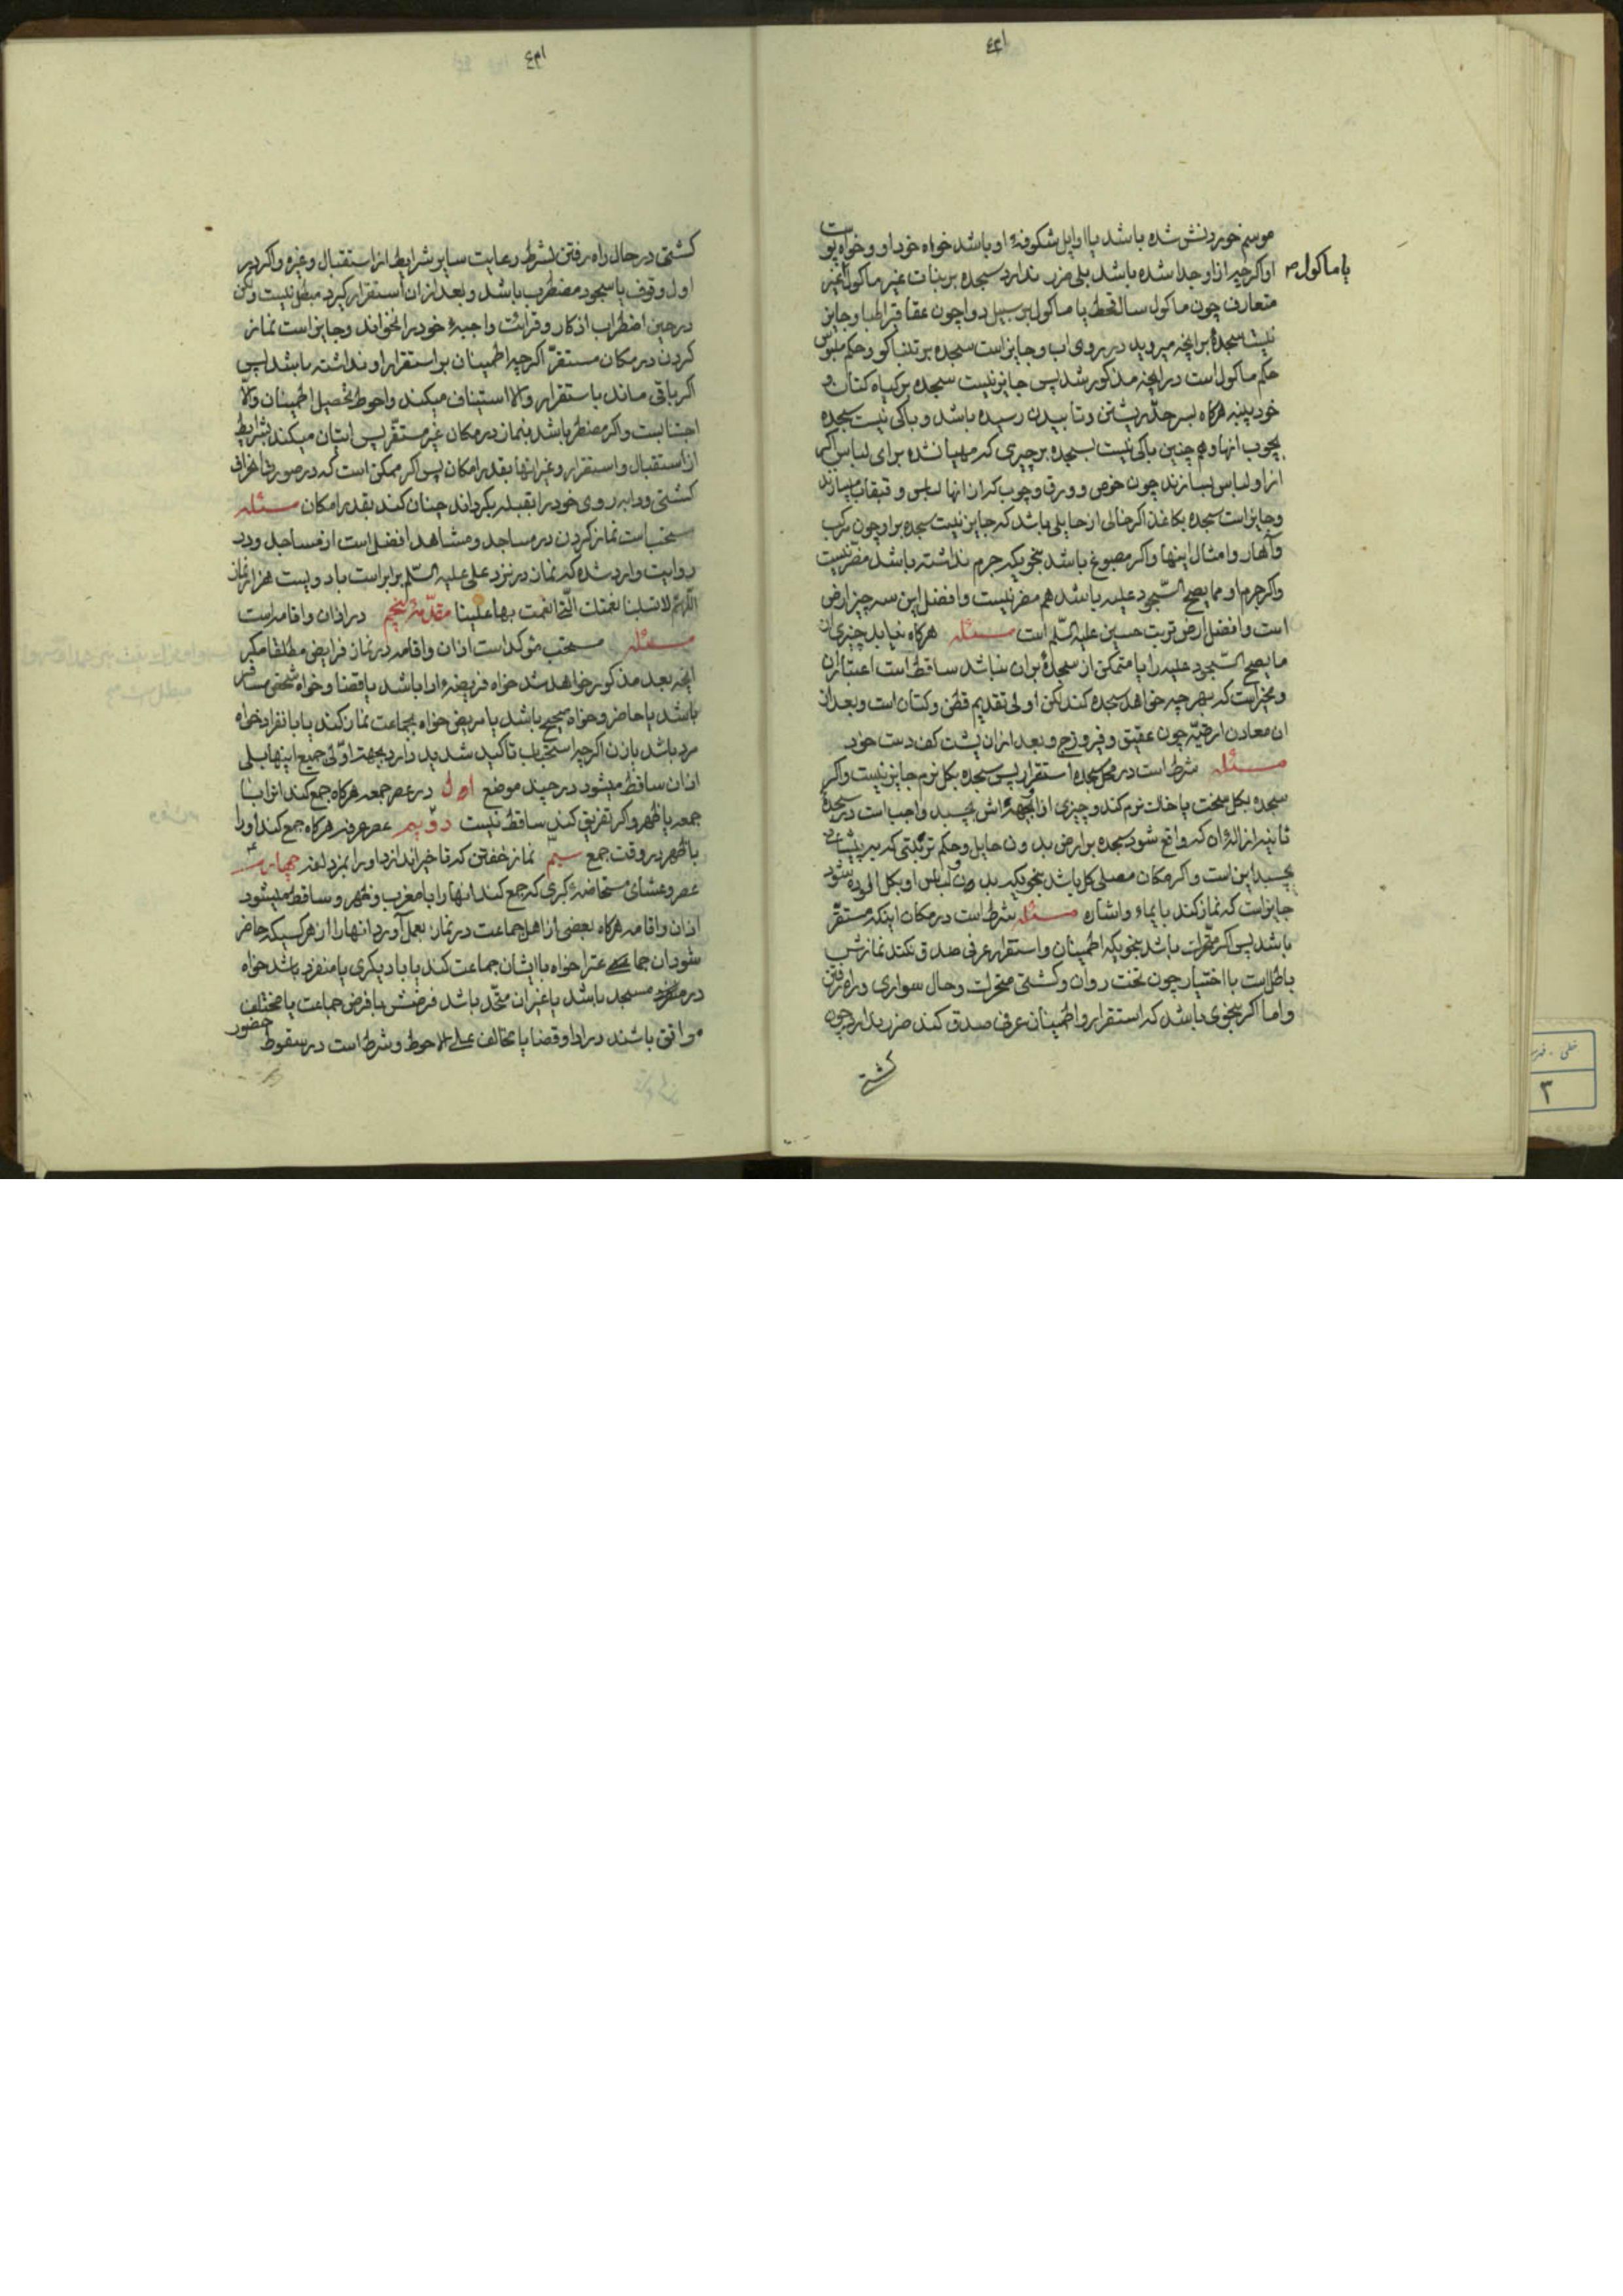 موسم خوردنش شده باشد یا اوایل شکوفهٔ او باشد خواه خود او و خواه پوست
او اکرچه از او جدا شده باشد بلی ضرر ندارد سجده بر نبات غیر ماکول غیر
یا ماکول
متعارف چون ماکول سال قحط یا ماکول بر سبیل دوا چون عقاقیر اطبا و جایز
نیست سجدهٔ بر انچه میروید در روی اب و جایز است سجده بر تنباکو و حکم ملبوس
حکم ماکول است در انچه مذکور شد پس جایز نیست سجده بر کیاه کتان و
خود پنبه هرکاه بسر حد رشتن و تابیدن رسیده باشد و باکی نیست سجده
بچوب انها و هم چنین باکی نیست بسجده بر چیزی که مهیا نشده برای لباس اکرچه
از او لباس بسازند چون خوص و ورق و چوب که از انها لباس و قبقاب میسازند
و جایز است سجده بکاغذ اکر خالی از حایلی باشد که جایز نیست سجده بر او چون مرکب
و آهار و امثال اینها و اکر مصبوغ باشد بنحویکه جرم نداشته باشد مضر نیست
و اکر جرم او مما یصح السجود علیه باشد هم مضر نیست و افضل این سه چیز ارض
است و افضل ارض تربت حسین علیه السلم است مسئله هرکاه نیابد چیزی از
ما یصح السجود علیه را یا متمکن از سجدهٔ بر ان نباشد ساقط است اعتبار ان
و مخیر است که بهر چه خواهد سجده کند لکن اولی تقدیم قطن و کتان است و بعد از
ان معادن ارضیه چون عقیق و فیروزج و بعد از ان پشت کف دست خود
مسئله شرط است در محل سجده استقرار پس سجده بکل نرم جایز نیست و اکر
سجده بکل سخت یا خاک نرم کند و چیزی از انجبهه‌اش بچسبد واجب است در سجدهٔ
ثانیه ازالهٔ ان که واقع شود سجده بر ارض بدون حایل و حکم تربتی که بر پیشانی
بچسبد این است و اکر مکان مصلی کل باشد بنحویکه بدن و لباس او بکل الوده شود
جایز است که نماز کند بایماء و اشاره مسئله شرط است در مکان اینکه مستقر
باشد پس اکر متحرک باشد بنحویکه اطمینان و استقرار عرفی صدق نکند نمازش
باطل است با اختیار چون تخت روان و کشتی متحرک و حال سواری و راه رفتن
و اما اکر بنحوی باشد که استقرار و اطمینان عرفی صدق کند ضرر ندارد چون
کشتی
کشتی در حال راه رفتن بشرط رعایت سایر شرایط از استقبال و غیره و اکر در
اول وقوف یا سجود مضطرب باشد و بعد از ان استقرار کیرد مبطل نیست ولکن
در حین اضطراب اذکار و قرائت واجبهٔ خود را نخواند و جایز است نماز
کردن در مکان مستقر اکرچه اطمینان بر استقرار او نداشته باشد پس
اکر باقی ماند باستقرار و الا استیناف میکند و احوط تحصیل اطمینان و الا
اجتنابست و اکر مضطر باشد بنماز در مکان غیر مستقر پس اتیان میکند بشرایط
از استقبال و استقرار و غیر انها بقدر امکان پس اکر ممکن است که در صورت انحراف
کشتی و دابه روی خود را بقبله بکرداند چنان کند بقدر امکان مسئله
مستحب است نماز کردن در مساجد و مشاهد افضل است از مساجد و در
روایت وارد شده که نماز در نزد علی علیه السلم برابر است با دویست هزار نماز
اللهم لا تسلبنا نعمتک التی انعمت بها علینا مقدمهٔ پنجم در اذان و اقامه است
مسئله مستحب مؤکد است اذان و اقامه در نماز فرایض مطلقا مکر
انچه بعد مذکور خواهد شد خواه فریضهٔ ادا باشد یا قضا و خواه شخص مسافر
باشد یا حاضر و خواه صحیح باشد یا مریض خواه بجماعت نماز کند یا بانفراد خواه
مرد باشد یا زن اکرچه استحباب تاکید شدید دارد بجهت اولی جمیع اینها بلی
اذان ساقط میشود در چند موضع اول در عصر جمعه هرکاه جمع کند انرا با
جمعه یا ظهر و اکر تفریق کند ساقط نیست دویم عصر عرفه هرکاه جمع کند او را
با ظهر در وقت جمع سیم نماز خفتن که تاخیر اندازد او را بمزدلفه چهارم
عصر و عشای مستحاضهٔ کبری که جمع کند انها را با مغرب و ظهر و ساقط میشود
اذان و اقامه هرکاه بعضی از اهل جماعت در نماز بعمل آورد انها را از هر کسیکه حاضر
شود ان جماعت را خواه با ایشان جماعت کند یا با دیکری یا منفرد باشد خواه
در مسجد باشد یا غیر ان متحد باشد فرضش با فرض جماعت یا مختلف
موافق باشند در ادا و قضا یا مخالف علی الاحوط و شرط است در سقوط حضور